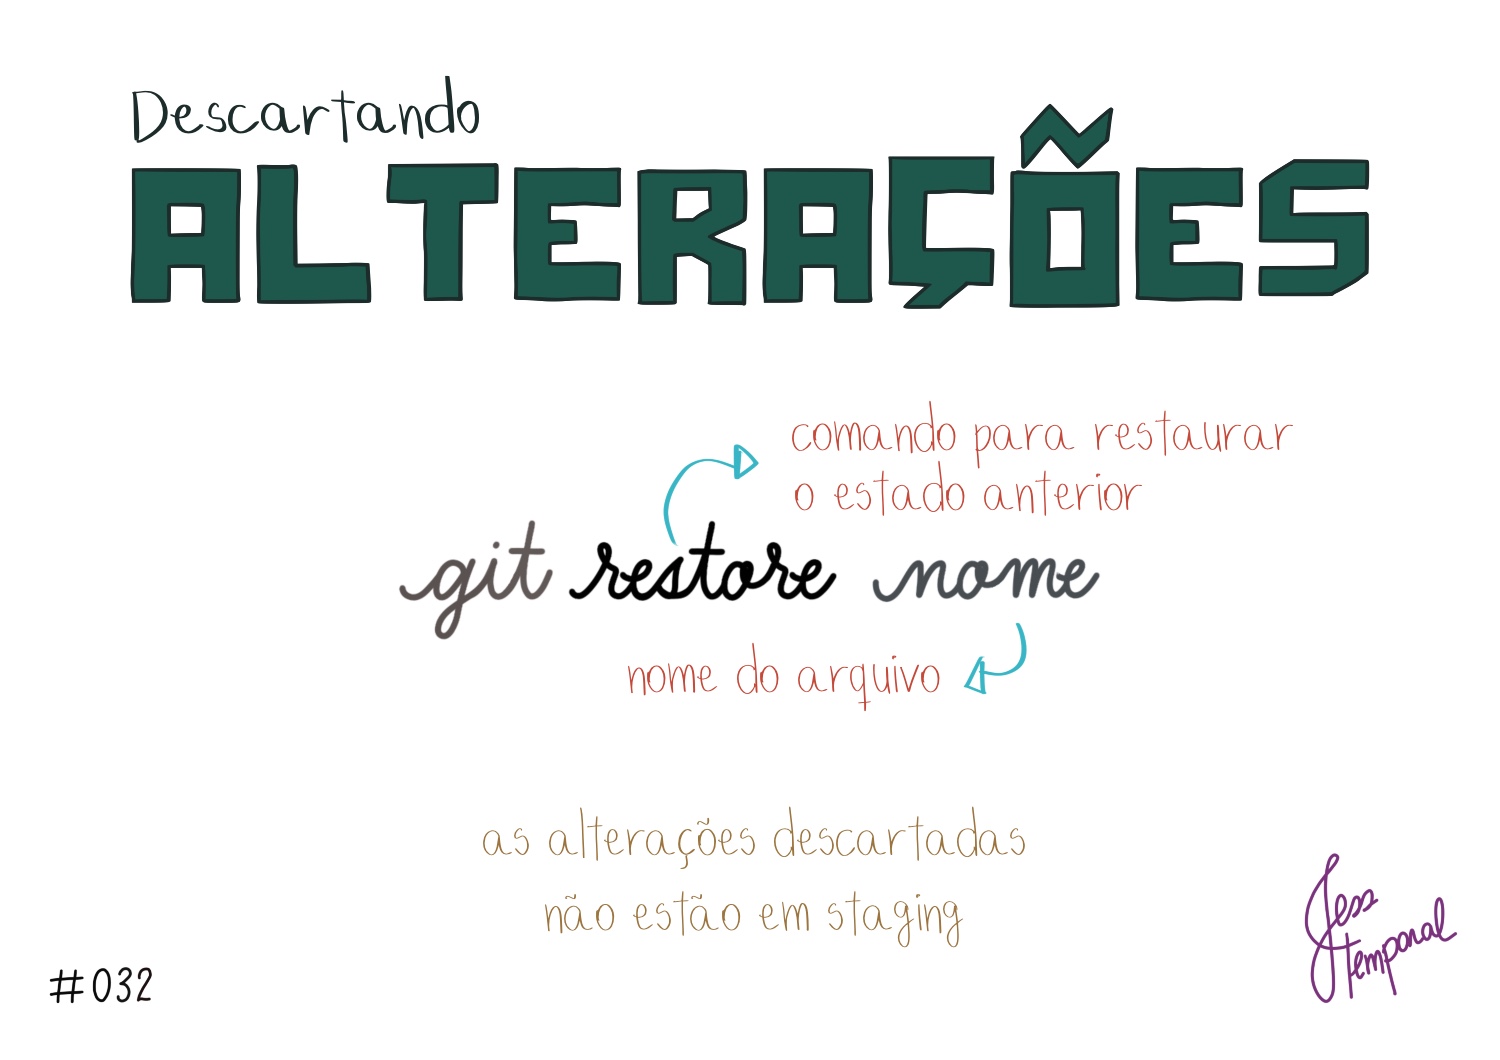 Descartando
ALTERAÇÕES
comando para restaurar
o estado anterior
git restore nome
nome do arquivo
as alterações descartadas
não estão em staging
#032
Jess
temporal